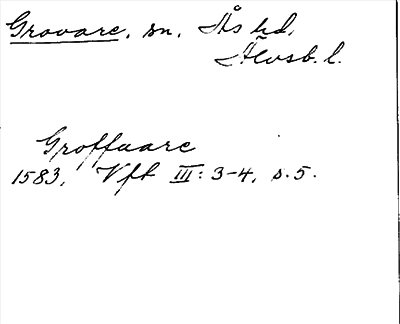 Grovare, sn, Ås hd,
Älvsb. l.
Groffuare
1583, Vft III: 3-4, s. 5.